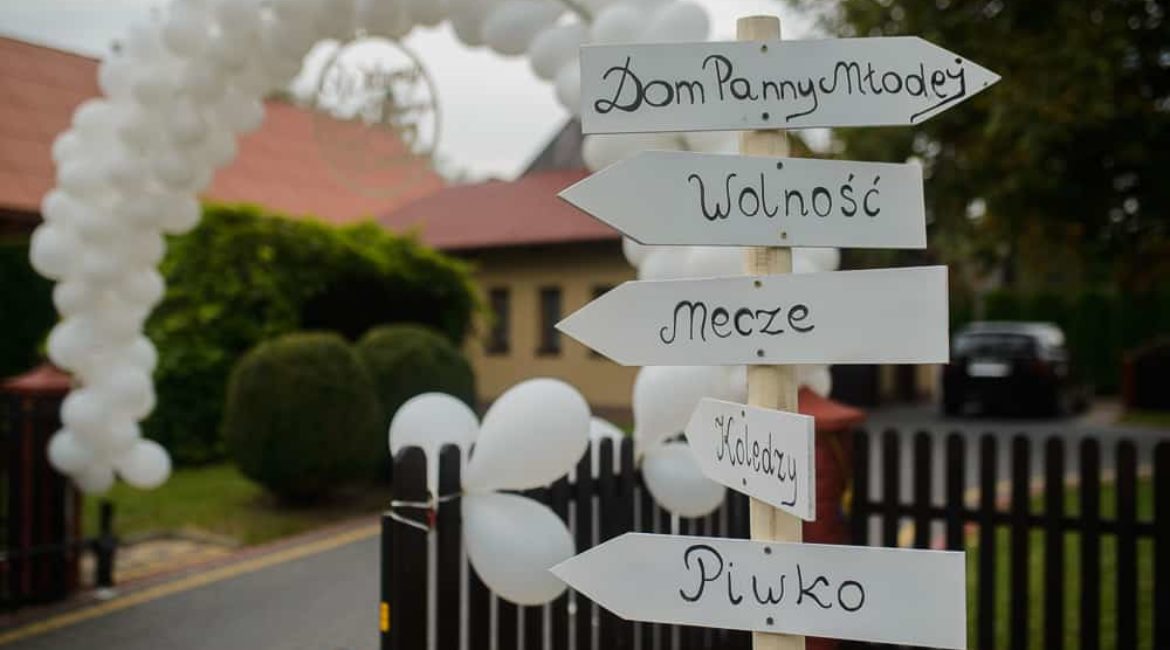 Dom Panny Młodej
Wolność
Mecze
Kolędzy
Piwko